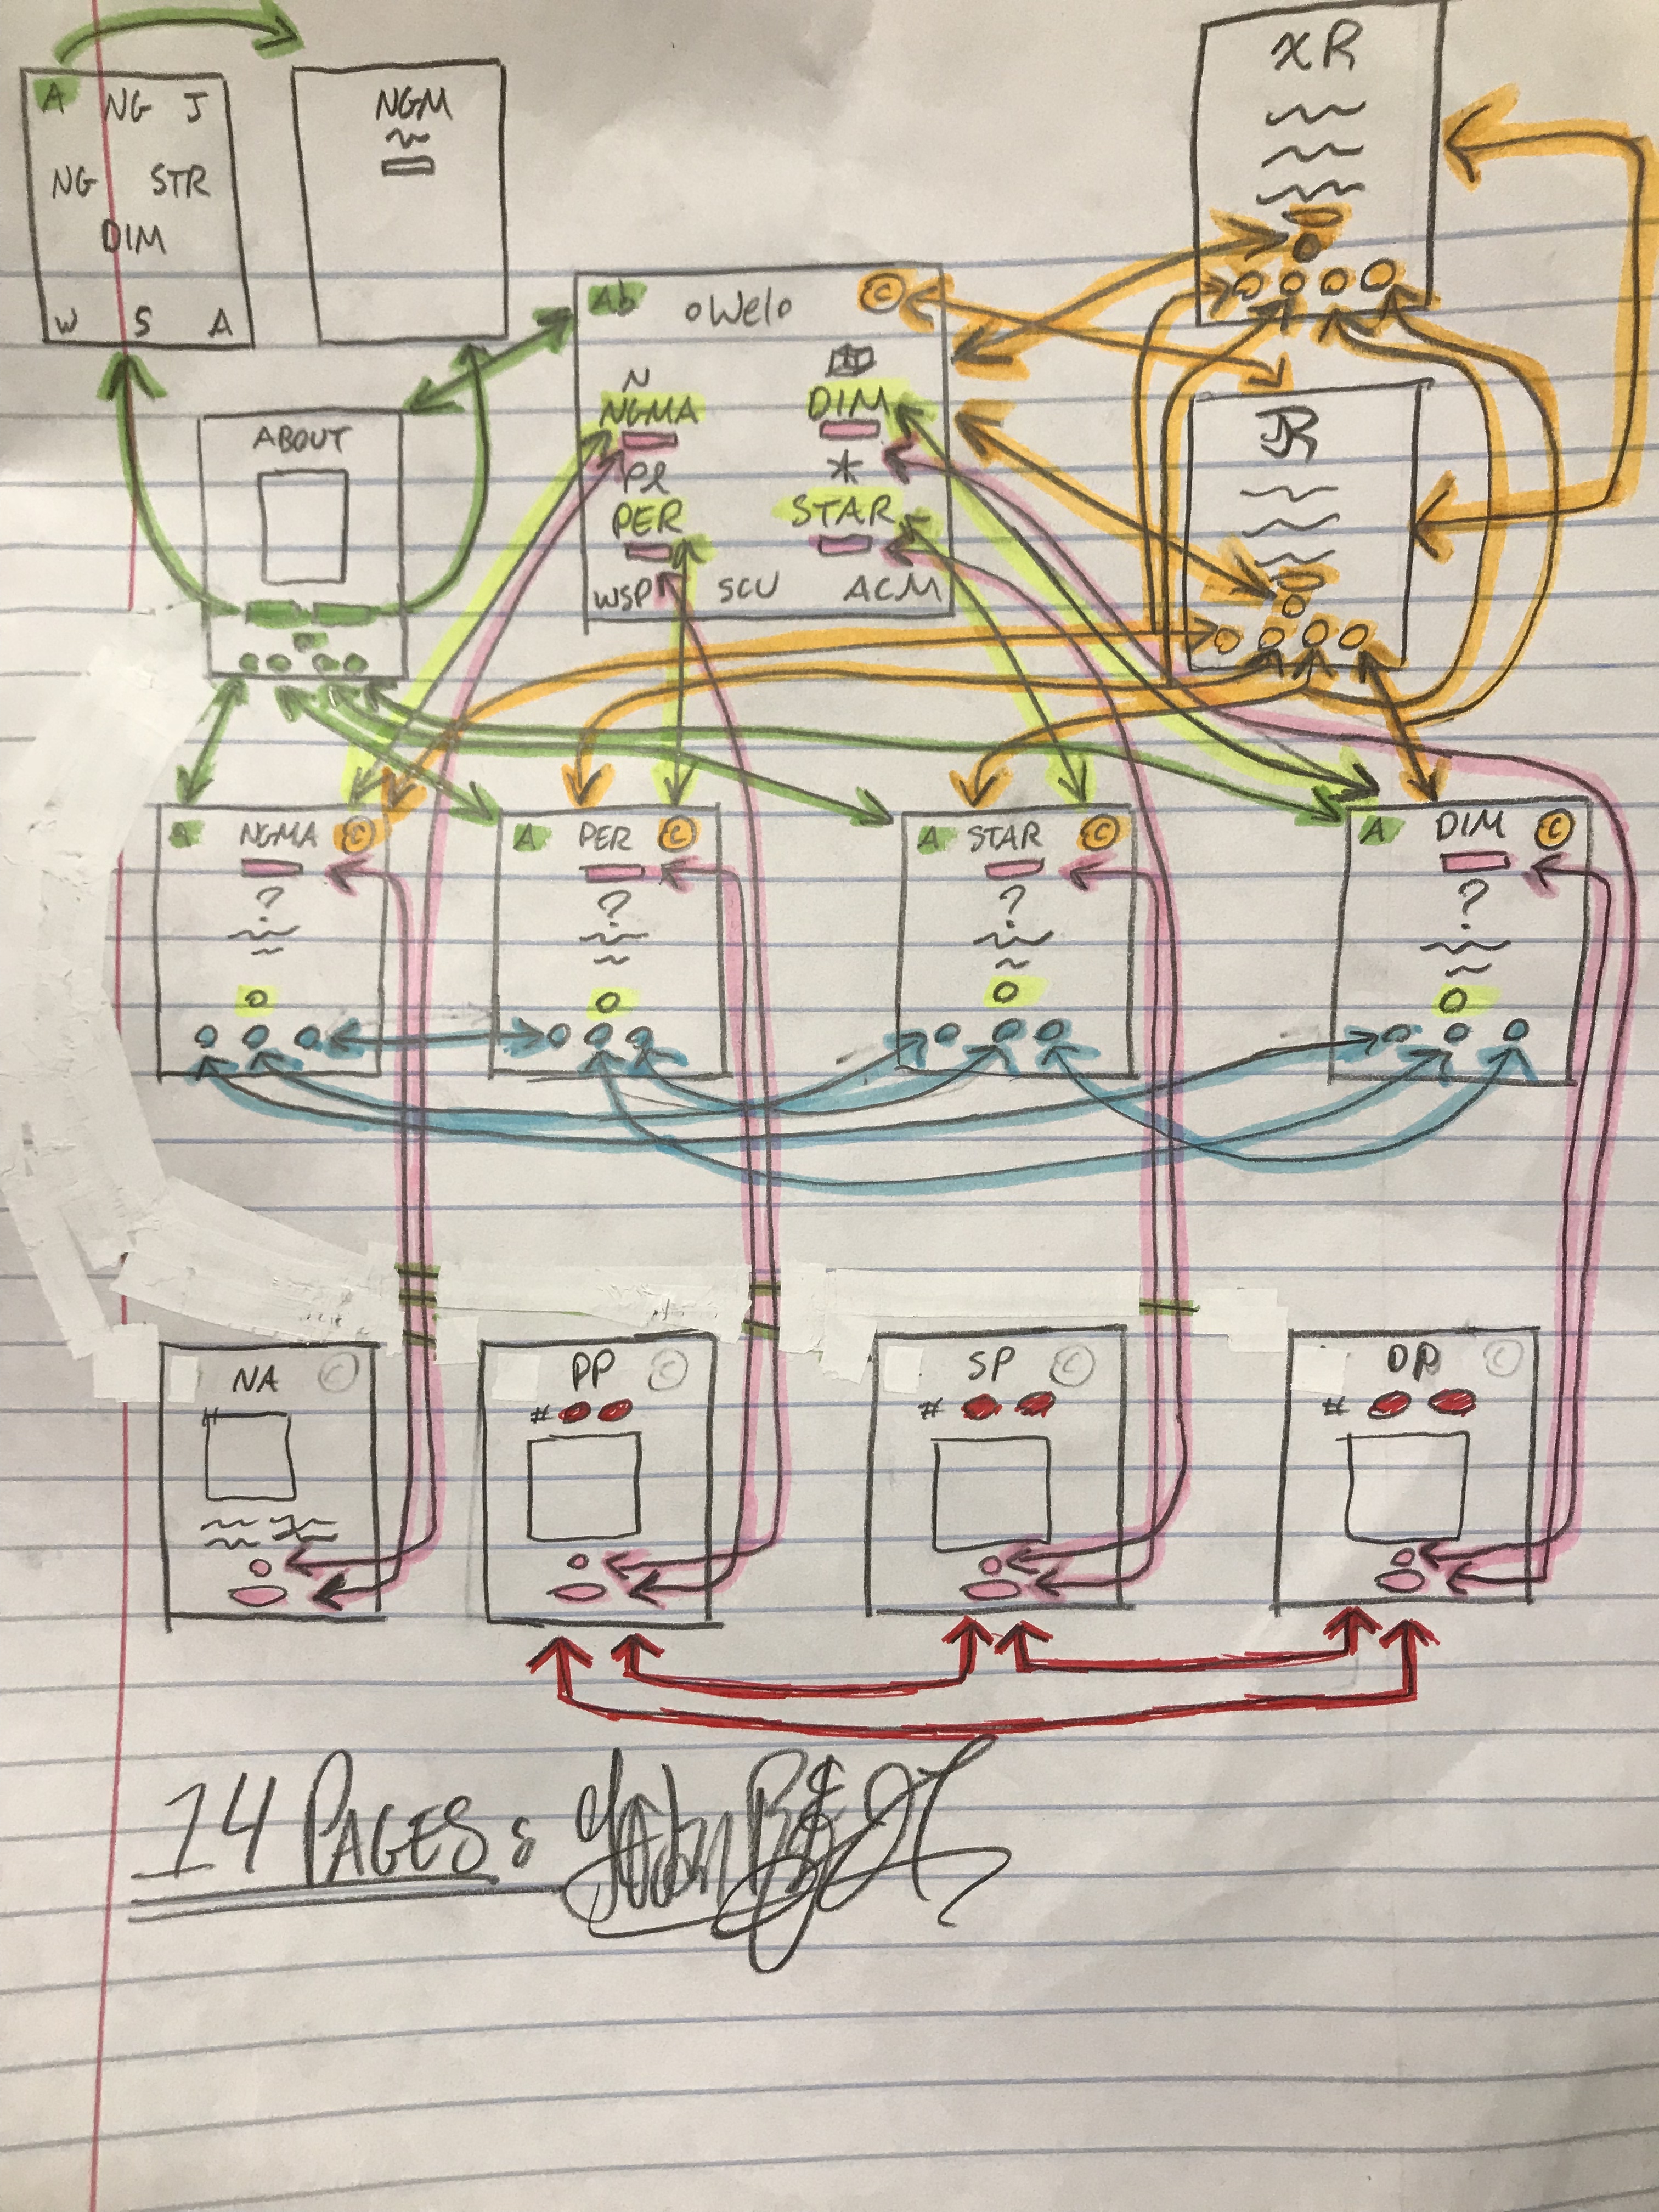 A NG J
NG STR
DIM
W S A
NGM
xR
Ab oWelo ©
N
NGMA DIM
Pl *
PER STAR
WSP SCU ACM
ABOUT
JR
A NGMA ©
?
A PER ©
?
A STAR ©
?
A DIM ©
?
NA ©
PP ©
#
SP ©
#
DP ©
#
14 PAGES: